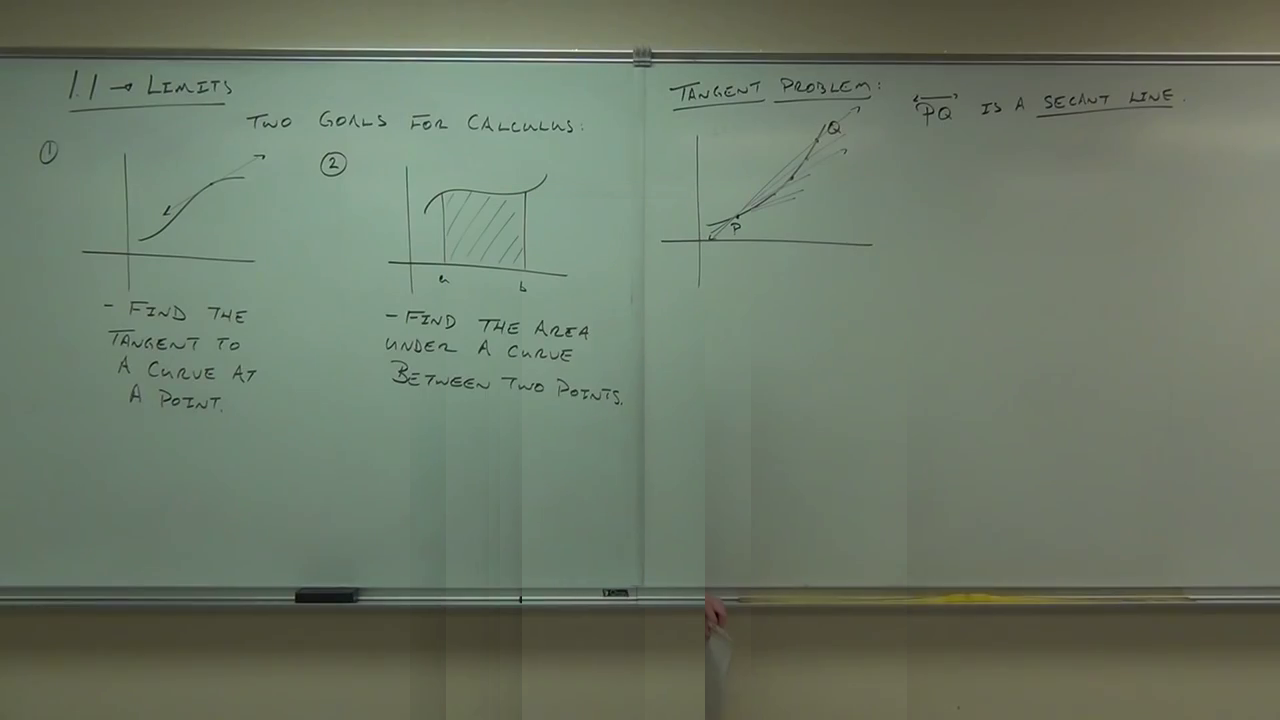 1.1 → LIMITS
TWO GOALS FOR CALCULUS:
①
- FIND THE
TANGENT TO
A CURVE AT
A POINT.
②
a b
- FIND THE AREA
UNDER A CURVE
BETWEEN TWO POINTS.
TANGENT PROBLEM:
Q
P
PQ IS A SECANT LINE.